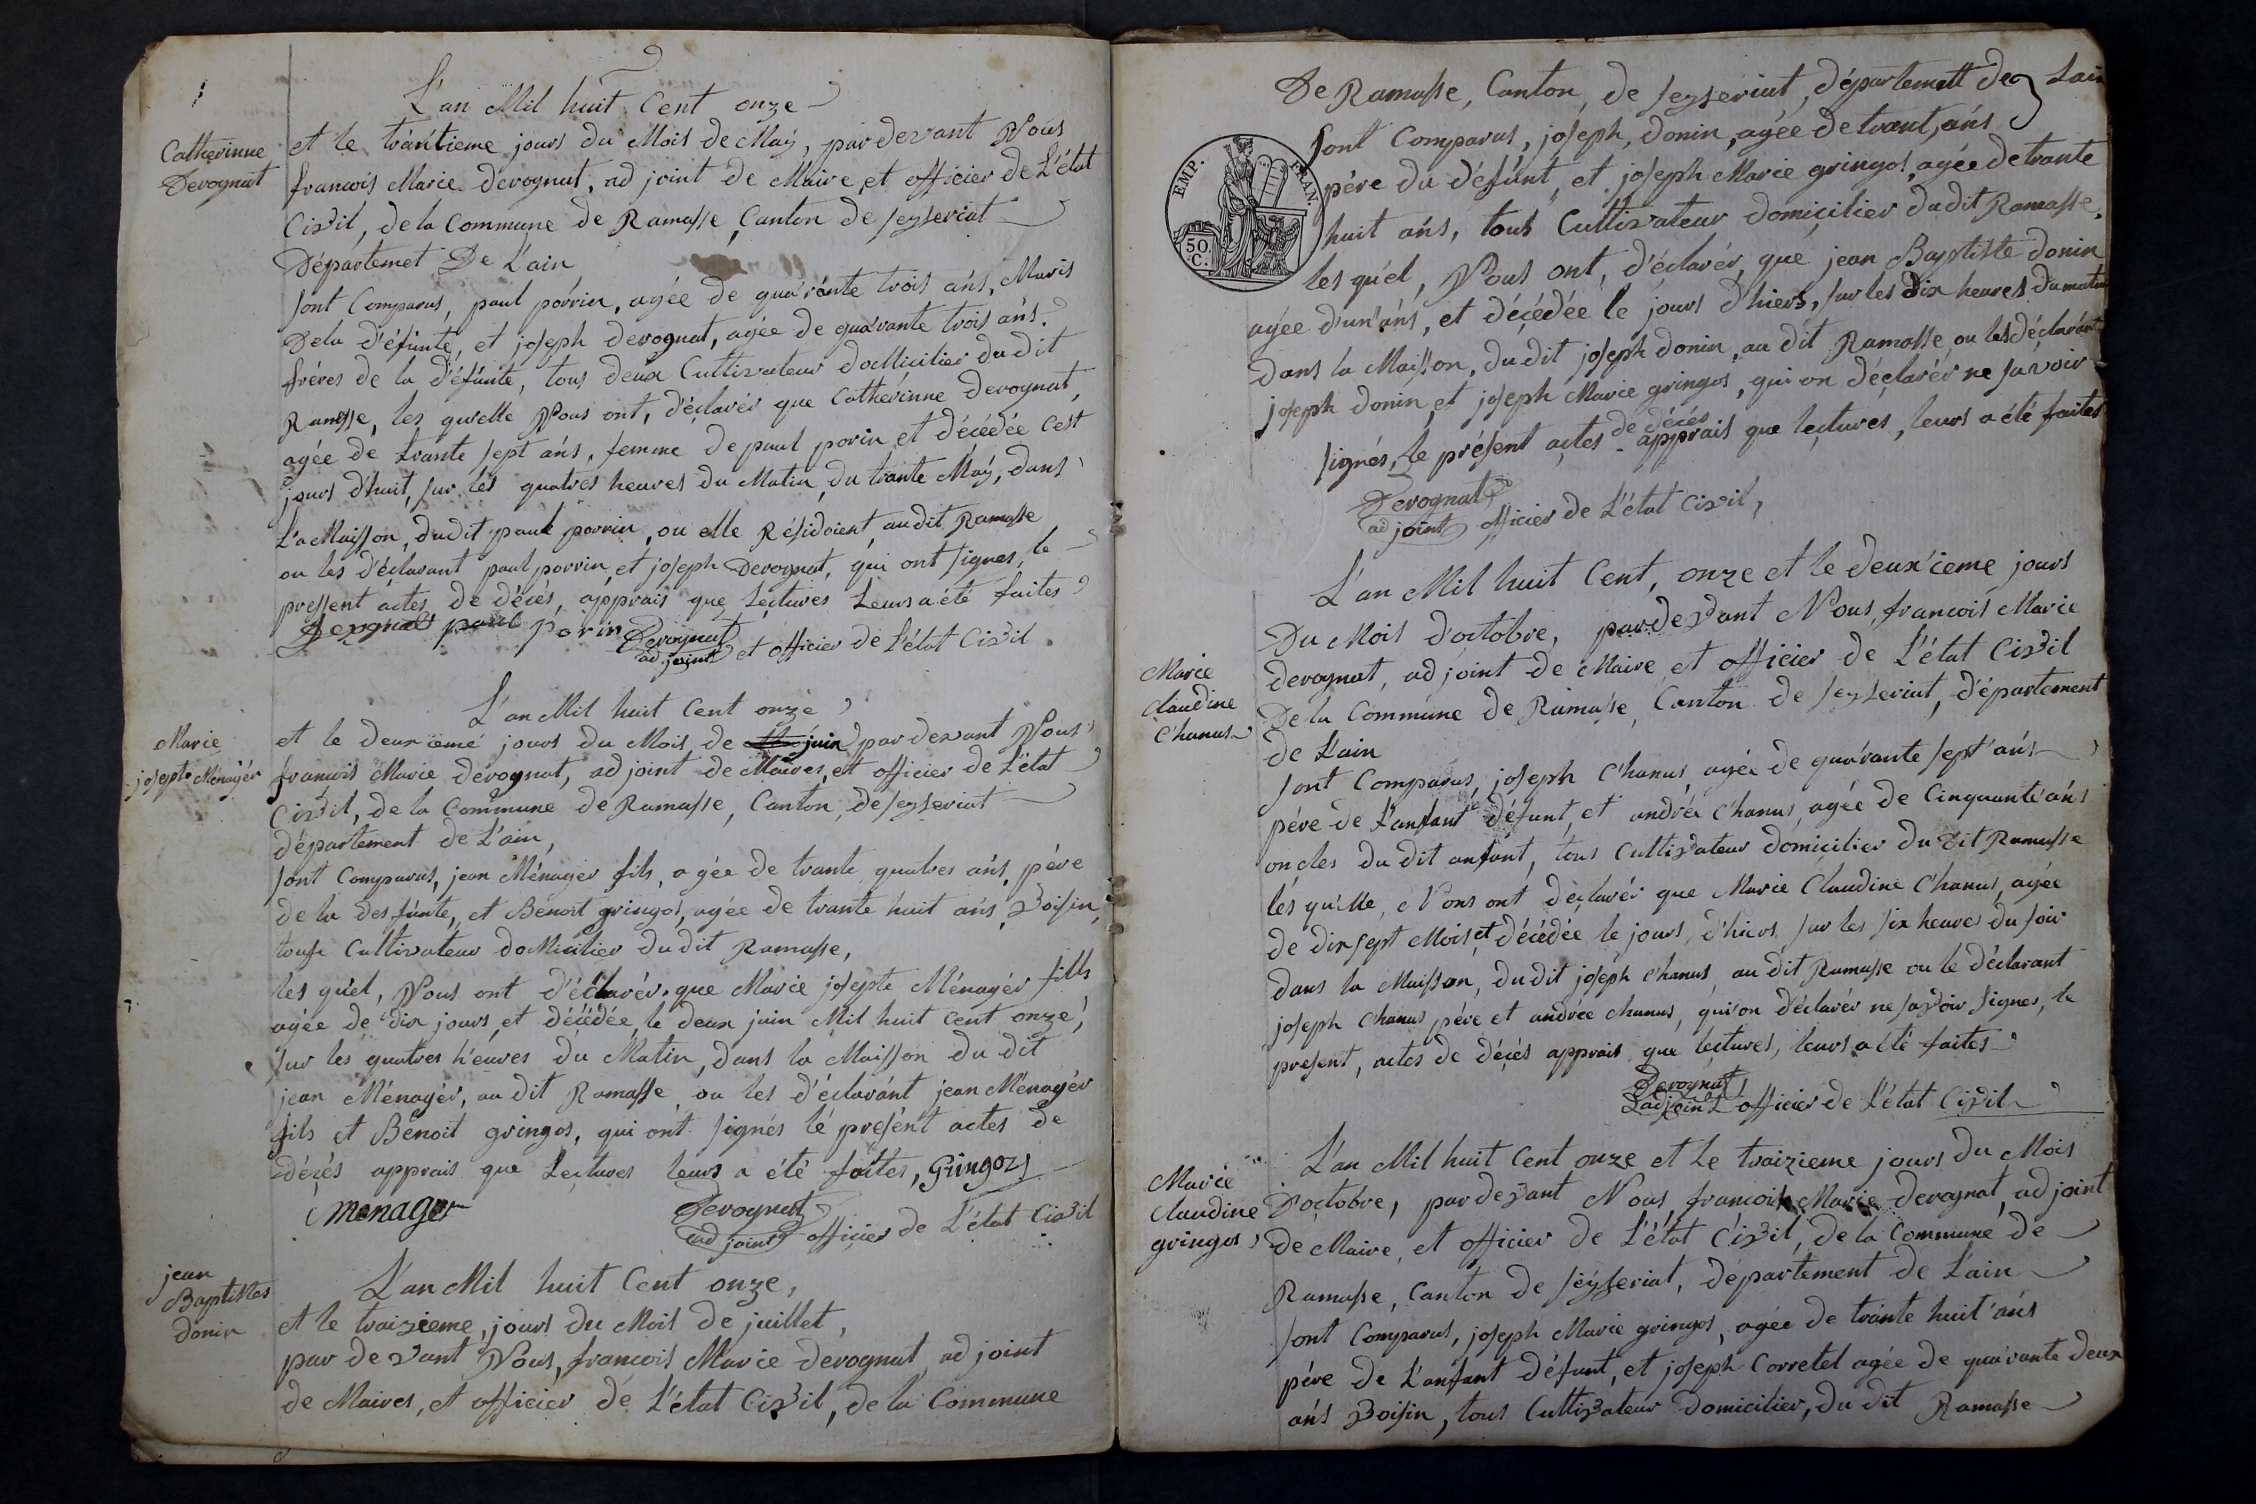 L'an Mil huit Cent onze
Catherinne
Devognat
et le trantieme jours du Mois de May, pardevant Nous
francois Marie devognat, ad joint de Maire et officier de L'état
Civil, de la Commune de Ramasse, Canton de seyseriat
Départemet De L'ain
sont Comparus, paul porrin, agée de quarénte trois ans, Maris
Dela d'éfunte, et joseph devognat, agée de quarante trois ans.
fréres de la d'éfunte, tous deux Cultivateur doMicilier dudit
Ramasse, les quelle Nous ont, d'éclarér que Cathérinne devognat,
agée de trante sept ans, femme de paul porin et décédée Cest
jours d'huit, sur lés quatres heures du Matin, du trante May, dans
L'a Maisson, dudit paul porrin, ou elle Résidoient, audit Ramasse
ou les d'éclarant paul porrin et joseph Devognat, qui ont signes, le
pressent actes de décés, apprais que Lectures Leurs a été faites
Devognat paul porin Devognat
ad joint et officier de L'état Civil
L'an Mil huit Cent onze
Marie
josepte Ménagér
et le deuxieme jours du Mois de juin par devant Nous
francois Marie devognat, ad joint de Maires, et officier de L'état
Civil, de la Commune de Ramasse, Canton de seyseriat
département de L'ain,
sont Comparus, jean Ménager fils, agée de trante quatres ans, pére
de la desfunte, et Benoit gringos, agée de trante huit ans, Voisin,
touss Cultivateur doMicilier dudit Ramasse,
les quel, Nous ont d'éclarér. que Marie josepte Ménagér fills
agée de dix jours, et décédée, le deux juin Mil huit Cent onze,
sur les quatres h'eures du Matin, dans la Maisson du dit
jean Ménagér, au dit Ramasse ou les d'éclarant jean Ménagér
fils et Benoit gringos, qui ont signés lé présént actes de
décés apprais que Lectures leurs a été faites, Gringoz
menager Devognat
ad joint officier de L'état Civil
jean
Baptistes
donin
L'an Mil huit Cent onze,
et le traizieme, jours du Mois de juillet,
par devant Nous, francois Marie devognat ad joint
de Maires, et officier de L'état Civil, de la Commune
De Ramasse, Canton, de seyseriat, département de Lain
EMP. FRAN.
50.
C.
sont Comparus, joseph, donin, agée de trant, ans
pére du défunt, et joseph Marie gringos, agée de trante
huit ans, tous Cultivateur domicilier dudit Ramasse,
les quel, Nous ont, d'éclarér, que jean Baptiste donin
agée d'un'ans, et décédée le jours d'hiers, sur les dix heures du matin
dans la Maisson, dudit joseph donin, au dit Ramasse, ou les déclarant
joseph donin, et joseph Marie gringos, qui on déclarér ne savoir
signés, le présent actes de décés apprais que lectures, leurs a été faites
Devognat
ad joint officier de L'état Civil,
L'an Mil huit Cent, onze et le deux'ieme jours
Du Mois d'octobre, pardevant Nous, francois Marie
devognat, ad joint de Maire, et officier de L'état Civil
Marie
Claudine
Chanus
De la Commune de Ramasse, Canton de seyseriat, d'épartement
de Lain
sont Comparus, joseph Chanus, agée de quarante sept'ans
pére de L'anfant défunt, et andréa Chanus, agée de Cinquante'ans
oncles du dit anfant, tous Cultivateur domicilier Du dit Ramasse
lés qu'elle, Nous ont déclarér que Marie Claudine Chanus, agée
de dix sept Mois, et décédée le jours, d'hiers, sur les six heures du soir
dans la Maisson, dudit joseph Chanus, au dit Ramasse ou le déclarant
joseph Chanus, pére et andrée chanus, qui on déclarér ne savoir signes, le
present, actes de décés apprais que lectures, leurs a été faites
Devognat
L'ad joint officier de L'état Civil
L'an Mil huit Cent onze et Le traizieme jours du Mois
Marie
Claudine
gringos
D'octobre, pardevant Nous, francois Marie devognat, ad joint
de Maire, et officier de L'état Civil, de la Commune de
Ramasse, Canton de séyseriat, département de Lain
sont Comparus, joseph Marie gringos, agée de trante huit'ans
pére de L'anfant défunt, et joseph Corretel agée de quarante deux
ans Voisin, tous Cultivateur domicilier, du dit Ramasse